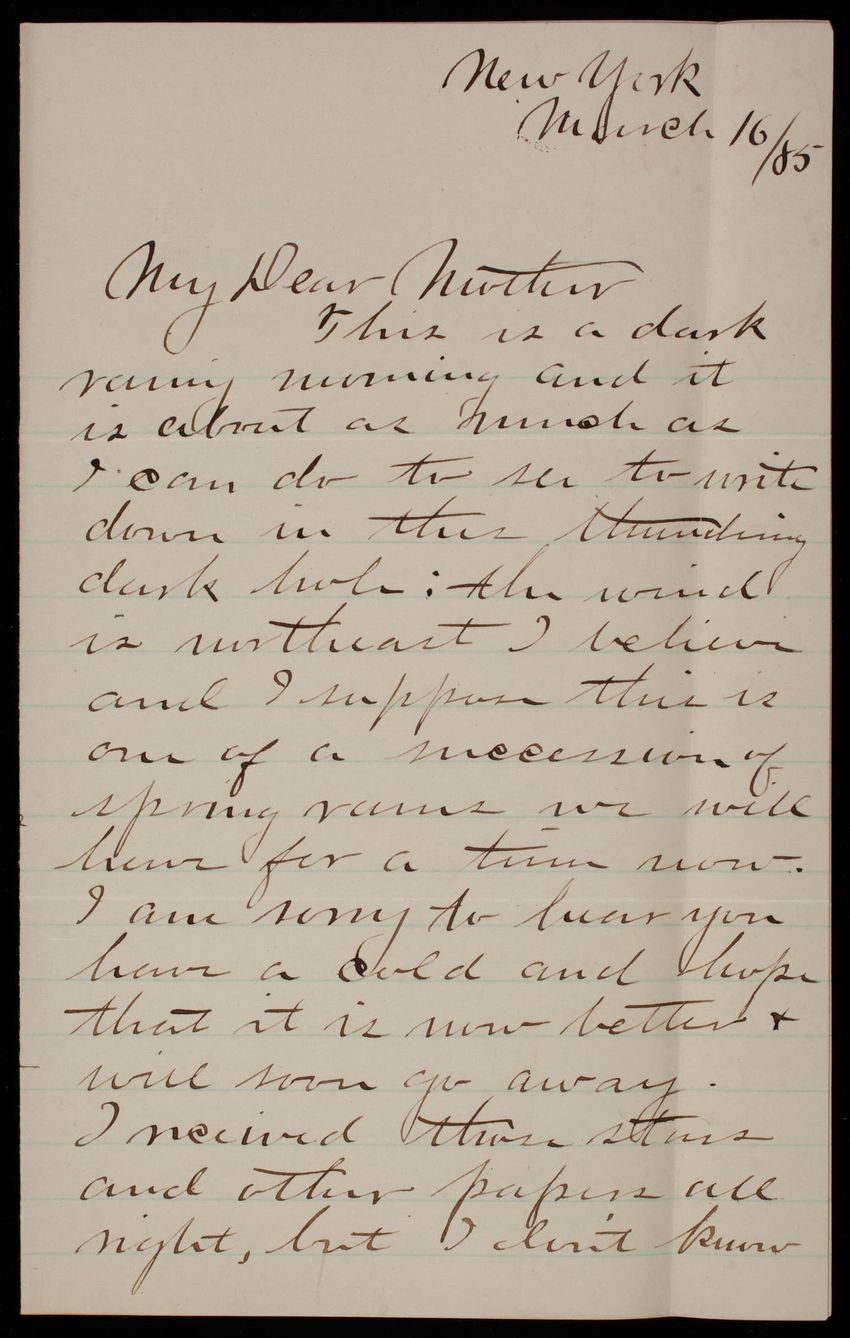 New York
March 16/85
My Dear Mother
This is a dark
rainy morning and it
is about as much as
I can do to see to write
down in this thundering
dark hole: the wind
is northeast I believe
and I suppose this is
one of a succession of
spring rains we will
have for a time now.
I am sorry to hear you
have a cold and hope
that it is now better +
will soon go away.
I received those stars
and other papers all
right, but I don't know